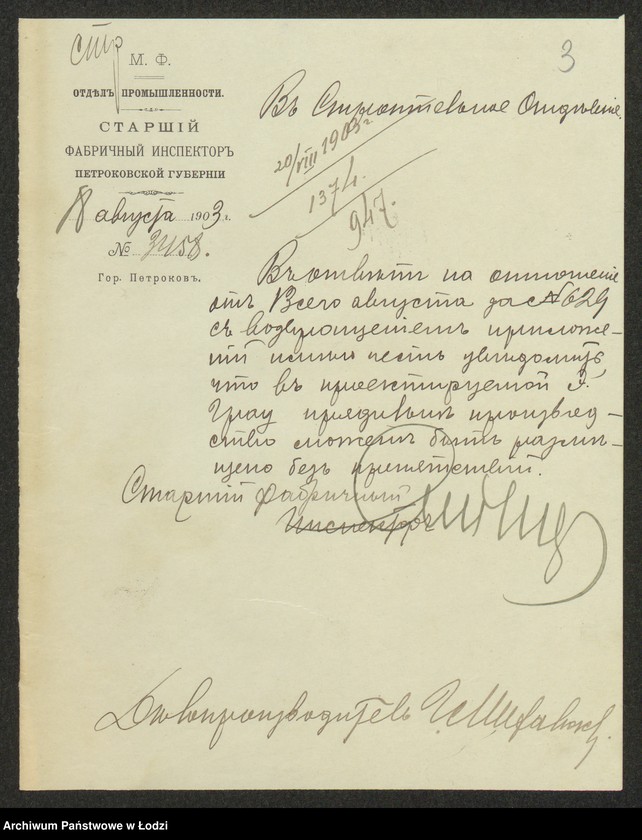 стр
3
М. Ф.
ОТДѢЛЪ ПРОМЫШЛЕННОСТИ.
СТАРШІЙ
ФАБРИЧНЫЙ ИНСПЕКТОРЪ
ПЕТРОКОВСКОЙ ГУБЕРНІИ
8 августа 1903 г.
№ 3458.
Гор. Петроковъ.
Въ Строительное Отдѣленіе.
20/VIII 1903 г.
1374.
947.
Въ отвѣтъ на отношеніе
отъ августа за № 629
съ возвращеніемъ приложе-
ній имѣю честь увѣдомить,
что въ проектируемой Э.
прядильни производ-
ство можетъ быть размѣ-
щено безъ препятствій.
Старшій фабричный
Инспекторъ
Дѣлопроизводитель
Archiwum Państwowe w Łodzi